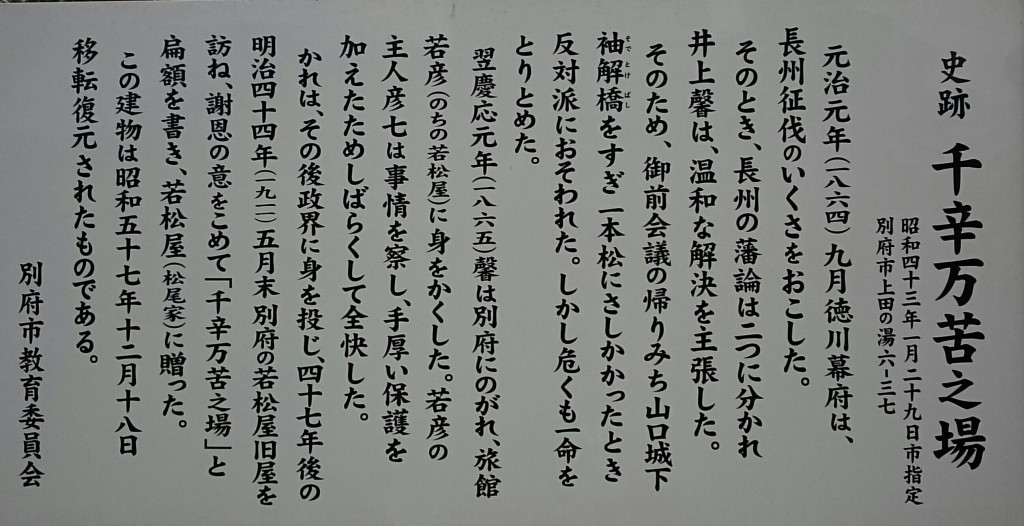 史跡 千辛万苦之場
昭和四十三年一月二十九日市指定
別府市上田の湯六-三七
元治元年(一八六四)九月徳川幕府は、
長州征伐のいくさをおこした。
そのとき、長州の藩論は二つに分かれ
井上馨は、温和な解決を主張した。
そのため、御前会議の帰りみち山口城下
袖解橋をすぎ一本松にさしかかったとき
そでとけばし
反対派におそわれた。しかし危くも一命を
とりとめた。
翌慶応元年(一八六五)馨は別府にのがれ、旅館
若彦(のちの若松屋)に身をかくした。若彦の
主人彦七は事情を察し、手厚い保護を
加えたためしばらくして全快した。
かれは、その後政界に身を投じ、四十七年後の
明治四十四年(一九一一)五月末別府の若松屋旧屋を
訪ね、謝恩の意をこめて「千辛万苦之場」と
扁額を書き、若松屋(松尾家)に贈った。
この建物は昭和五十七年十二月十八日
移転復元されたものである。
別府市教育委員会